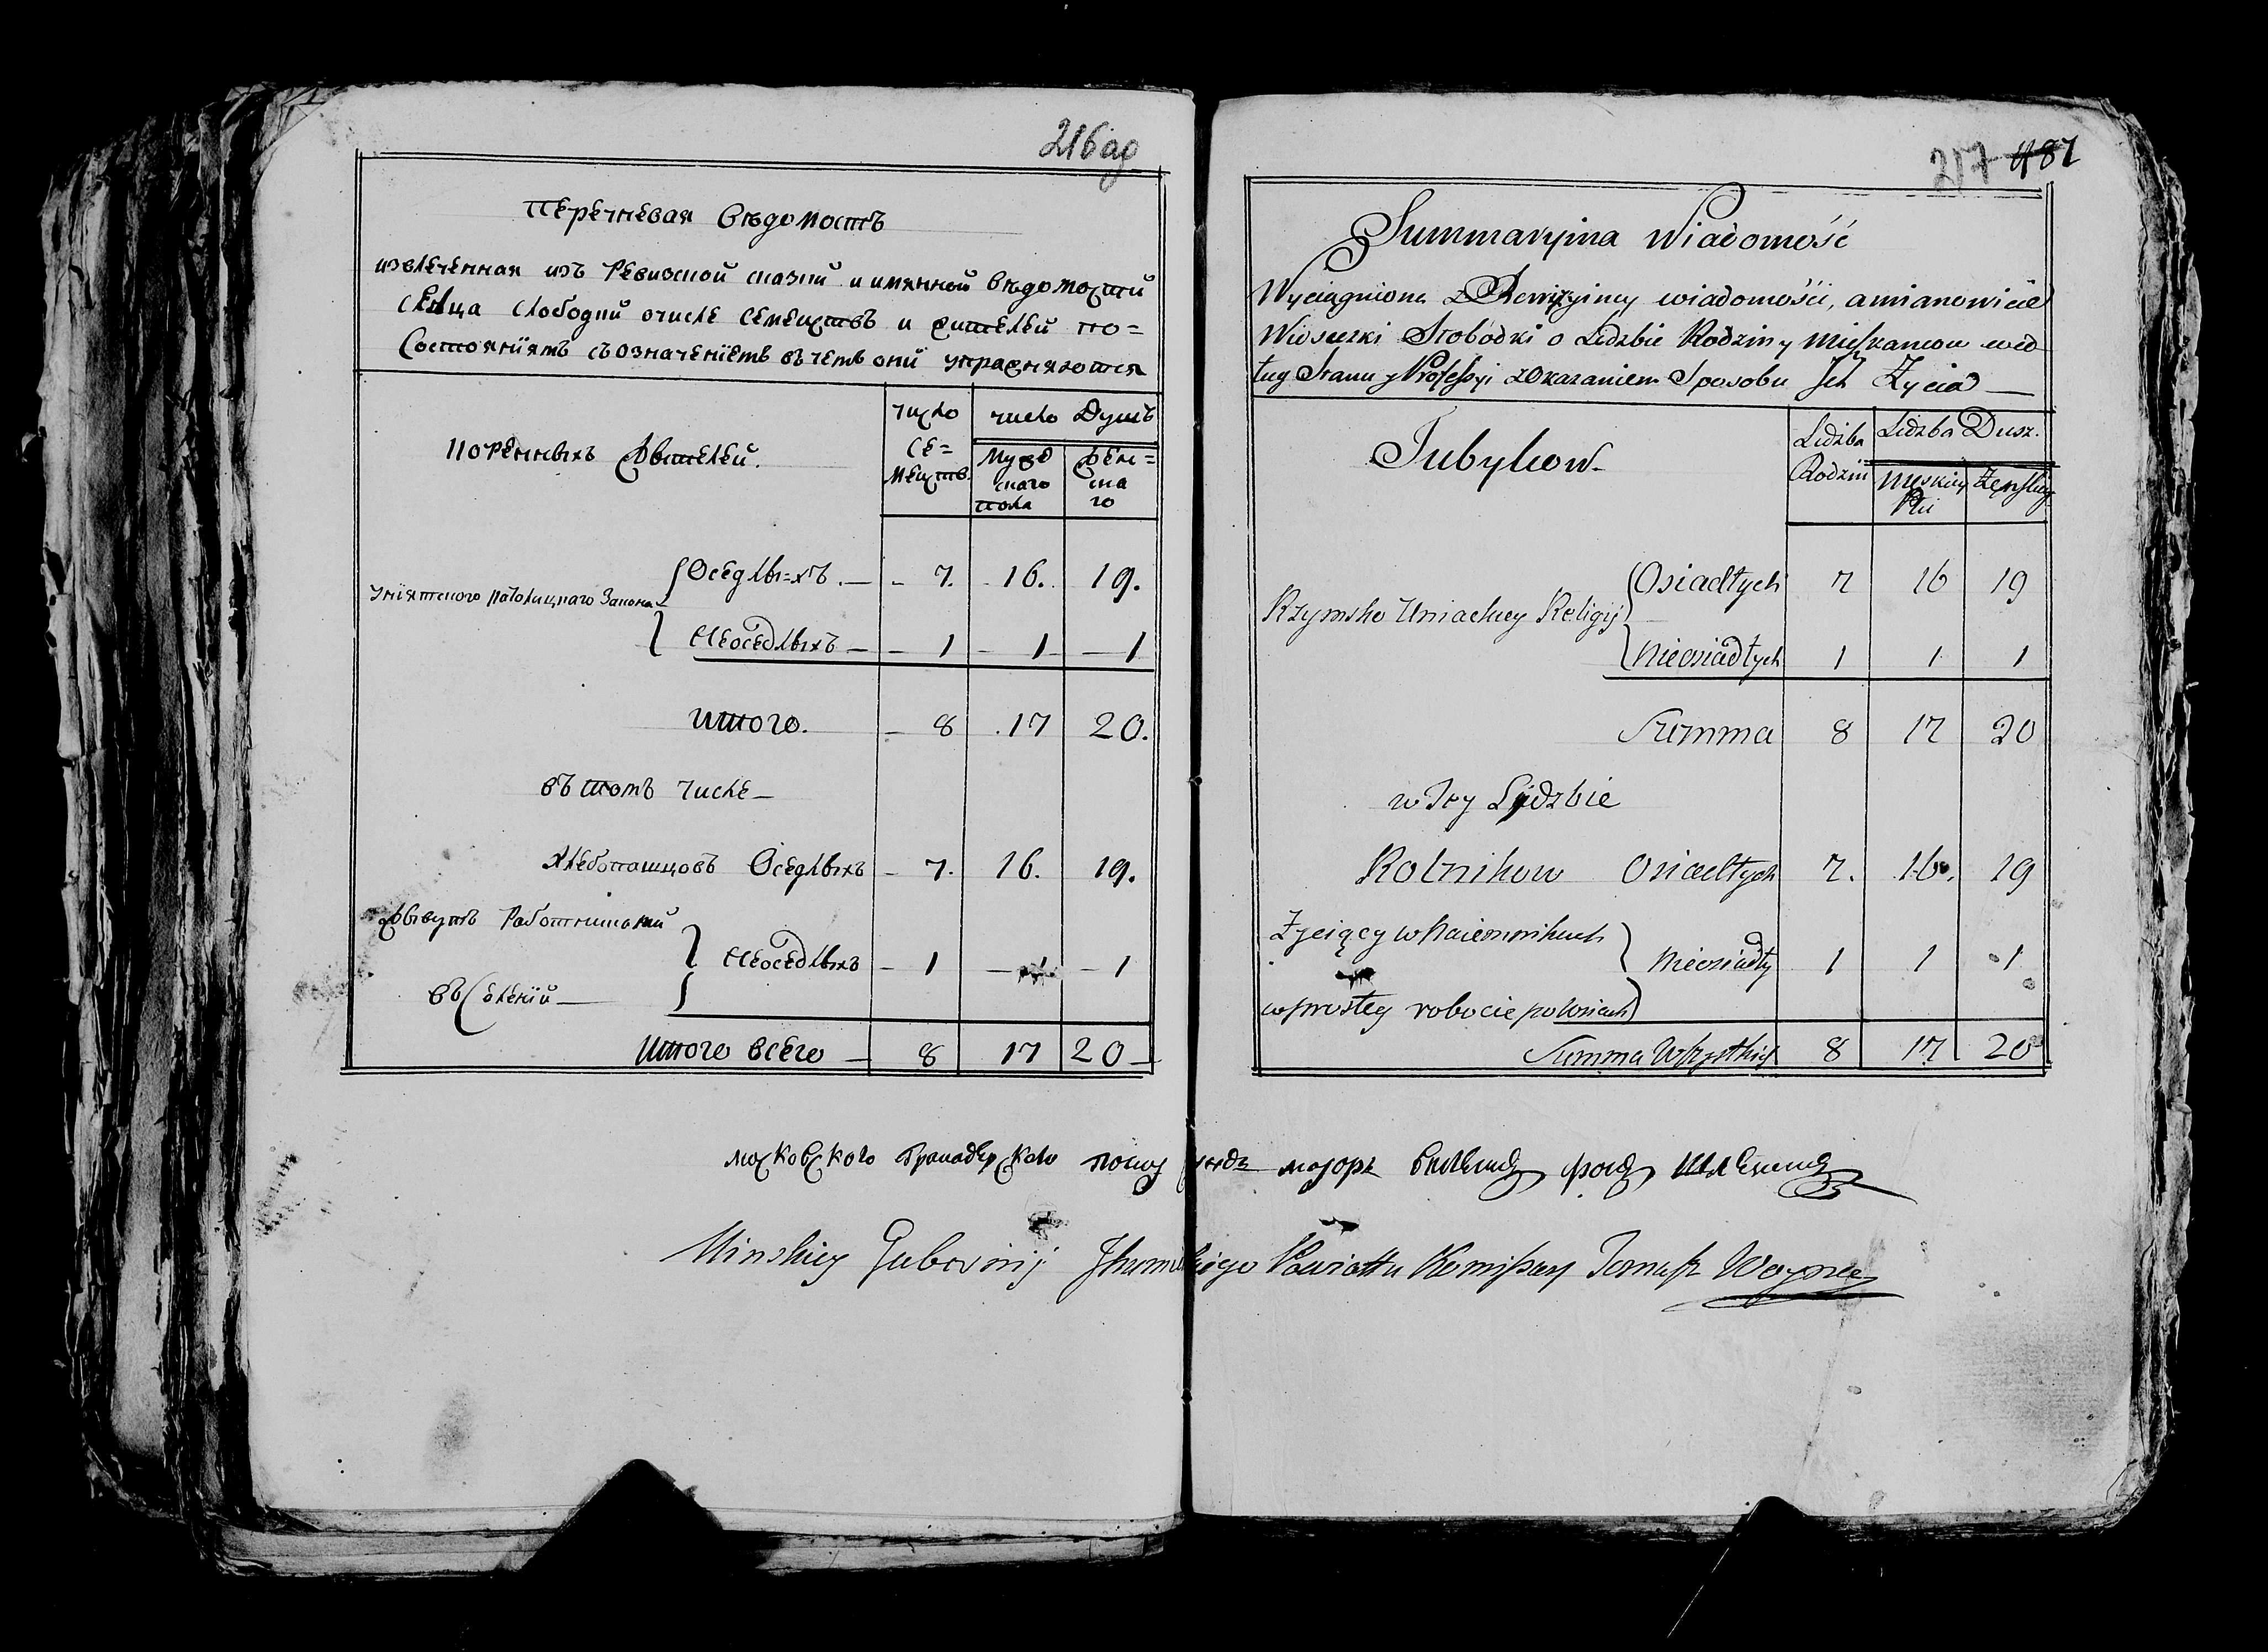 216 ад
Перечневая вѣдомость
извлеченная изъ Ревизской сказки и имянной вѣдомости
сельца слободки очисле семействъ и жителей по=
Состояніямъ съозначеніемъ въчемъ они упражняются
Коренныхъ жителей.
число семействъ.
число Душъ
мужескаго пола
женскаго
Уніятского католицкаго Закона
Оседлыхъ. — 7. 16. 19.
Неоседлыхъ — 1 — 1 — 1
Итого. — 8 17 20.
въ томъ числе —
Хлебопашцовъ Оседлыхъ — 7. 16. 19.
живутъ работниками
Неоседлыхъ — 1 — 1 — 1
въ Селеній —
Итого всего — 8 17 20 —
217 487
Summaryina Wiadomość
Wyciągniona z Rewizyiney wiadomości, amianowicie
Wioseczki Słobodki o Lidzbie Rodzin y Mieszkancow wed
ług Stanu y Professyi zOkazaniem Sposobu Jch Życia —
Tubylcow
Lidzba Rodzin
Lidzba Dusz.
Męskiey Płci
Żeńskiey
Rzymsko Uniackiey Religij
Osiadłych 7 16 19
Nieosiadłych 1 1 1
Summa 8 17 20
w Tey Lidzbie
Rolnikow Osiadłych 7. 16. 19
Żyiący w Naiemnikach
Nieosiadły 1 1 1
w prostey robocie po Wsiach
Summa Wszystkich 8 17 20
московского Гранадерского полку маиоръ фонъ
Minskiey Gubernij Jhumenskiego Powiattu Komissarz Woyna